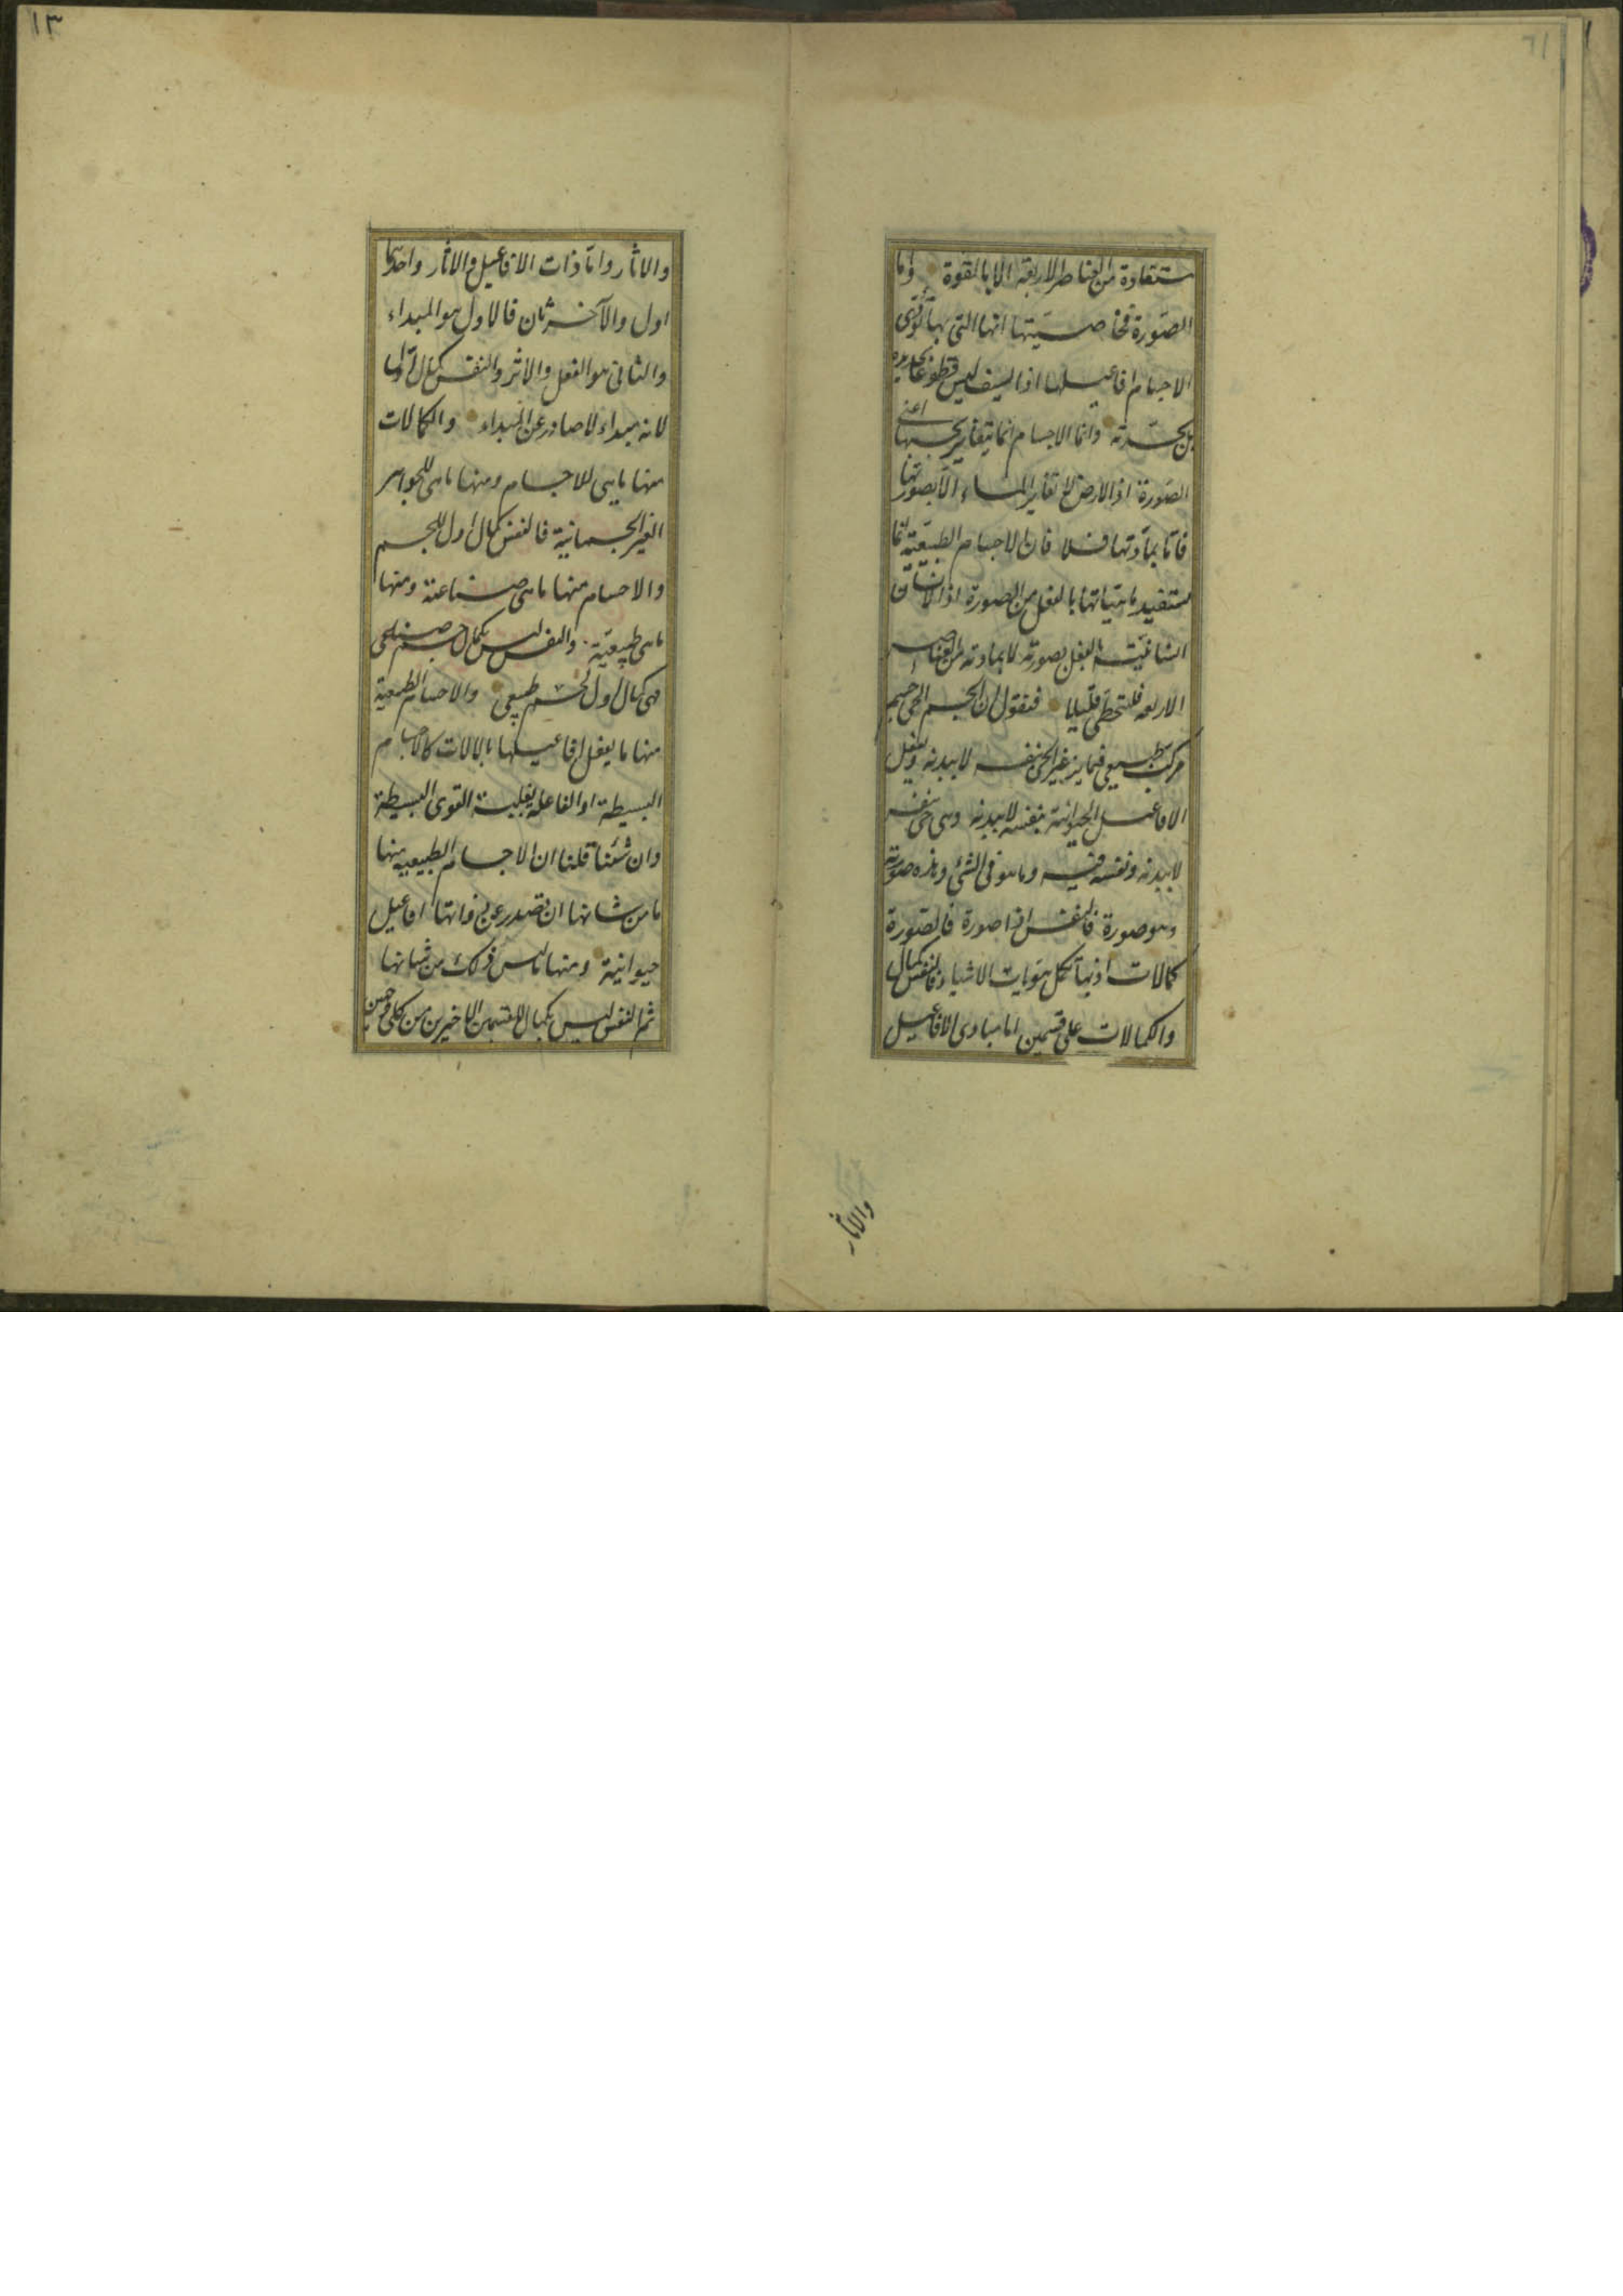 مستفادة من العناصر الاربعة الا بالقوة واما
الصورة فخاصيتها انها التى بها تؤدى
الاجسام افاعيلها اذ السيف ليس قطوعا بحديده
بل بحدته وانما الاجسام انما يتغاير بجنسها اعنى
الصورة اذ الارض لا تغاير الماء الا بصورتها
فاما بمادتها فلا فان الاجسام الطبيعية انما
تستفيد ماهياتها بالفعل من الصورة اذ الانسان
انسانيته بالفعل بصورته لا بمادته من العناصر
الاربعة فلنتخطى قليلا فنقول ان الجسم الحى جسم
مركب طبيعى فيمايز غير الحى بنفسه لا ببدنه ويفعل
الافاعيل الحيوانية بنفسه لا ببدنه وهى حى بنفسه
لا ببدنه ونفسه فيه وما هو فى الشئ وهذه صورته
وهو صورة فالنفس اذا صورة فالصورة
كمالات اذ بها تكمل هويات الاشياء فالنفس كمال
والكمالات على قسمين اما مبادى الافاعيل
والاثار
١٣
والاثار واما ذات الافاعيل والاثار واحدهما
اول والآخر ثان فالاول هو المبداء
والثانى هو الفعل والاثر والنفس كمال اول
لانه مبداء لا صادر عن المبداء والكمالات
منها ماهى للاجسام ومنها ماهى للجواهر
الغير الجسمانية فالنفس كمال اول للجسم
والاجسام منها ماهى صناعية ومنها
ماهى طبيعية والنفس ليس بكمال جسم صناعى
فهى كمال اول لجسم طبيعى والاجسام الطبيعية
منها ما يفعل افاعيلها بالالات كالاجسام
البسيطة او الفاعلة بغلبة القوى البسيطة
وان شئنا قلنا ان الاجسام الطبيعية منها
ما من شانها ان تصدر عن ذواتها افاعيل
حيوانية ومنها ما ليس ذلك من شانها
ثم النفس ليس بكمال للقسمين الاخيرين من كلى